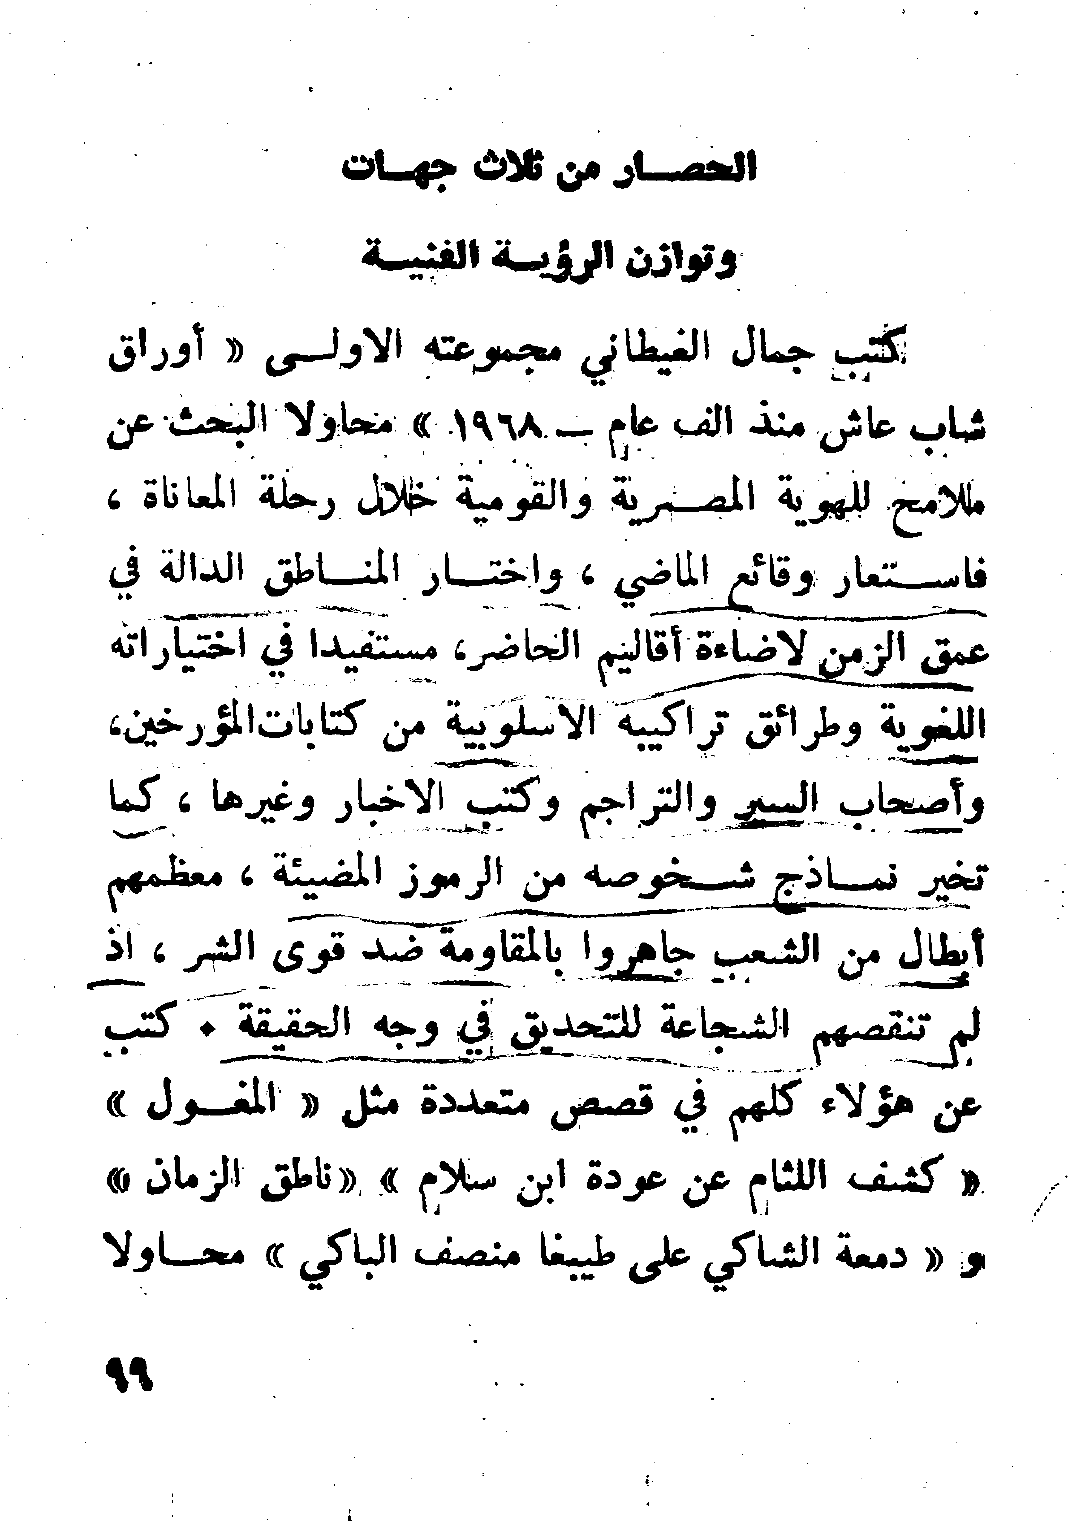 الحصار من ثلاث جهات
وتوازن الرؤية الفنية
كتب جمال الغيطاني مجموعته الاولى « أوراق
شاب عاش منذ الف عام – ١٩٦٨ » محاولا البحث عن
ملامح للهوية المصرية والقومية خلال رحلة المعاناة ،
فاستعار وقائع الماضي ، واختار المناطق الدالة في
عمق الزمن لاضاءة أقاليم الحاضر، مستفيدا في اختياراته
اللغوية وطرائق تراكيبه الاسلوبية من كتابات المؤرخين،
وأصحاب السير والتراجم وكتب الاخبار وغيرها ، كما
تخير نماذج شخوصه من الرموز المضيئة ، معظمهم
أبطال من الشعب جاهروا بالمقاومة ضد قوى الشر ، اذ
لم تنقصهم الشجاعة للتحديق في وجه الحقيقة • كتب
عن هؤلاء كلهم في قصص متعددة مثل « المغول »
« كشف اللثام عن عودة ابن سلام » «ناطق الزمان »
و « دمعة الشاكي على طيبغا منصف الباكي » محاولا
٩٩